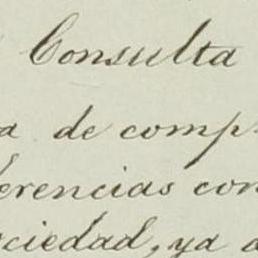 Consulta
a de comp
erencias con
ociedad, ya a